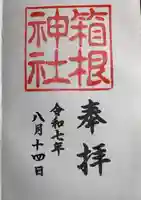 奉拝
箱根
神社
令和七年
八月十四日